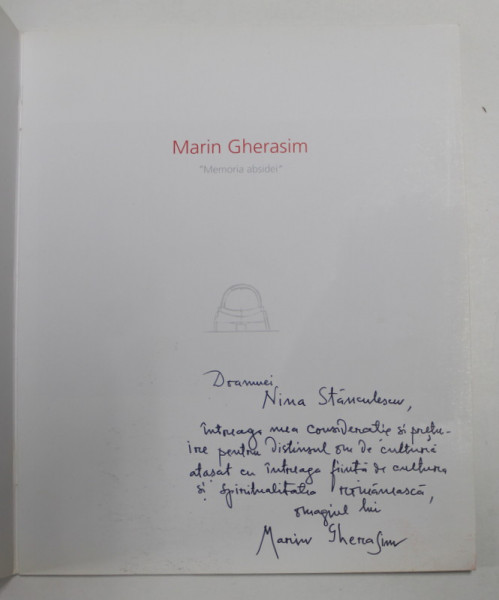 Marin Gherasim
"Memoria absidei"
Doamnei
Nina Stănculescu,
întreaga mea considerație și prețu-
ire pentru distinsul om de cultură
atașat cu întreaga ființă de cultura
și spiritualitatea românească,
omagiul lui
Marin Gherasim